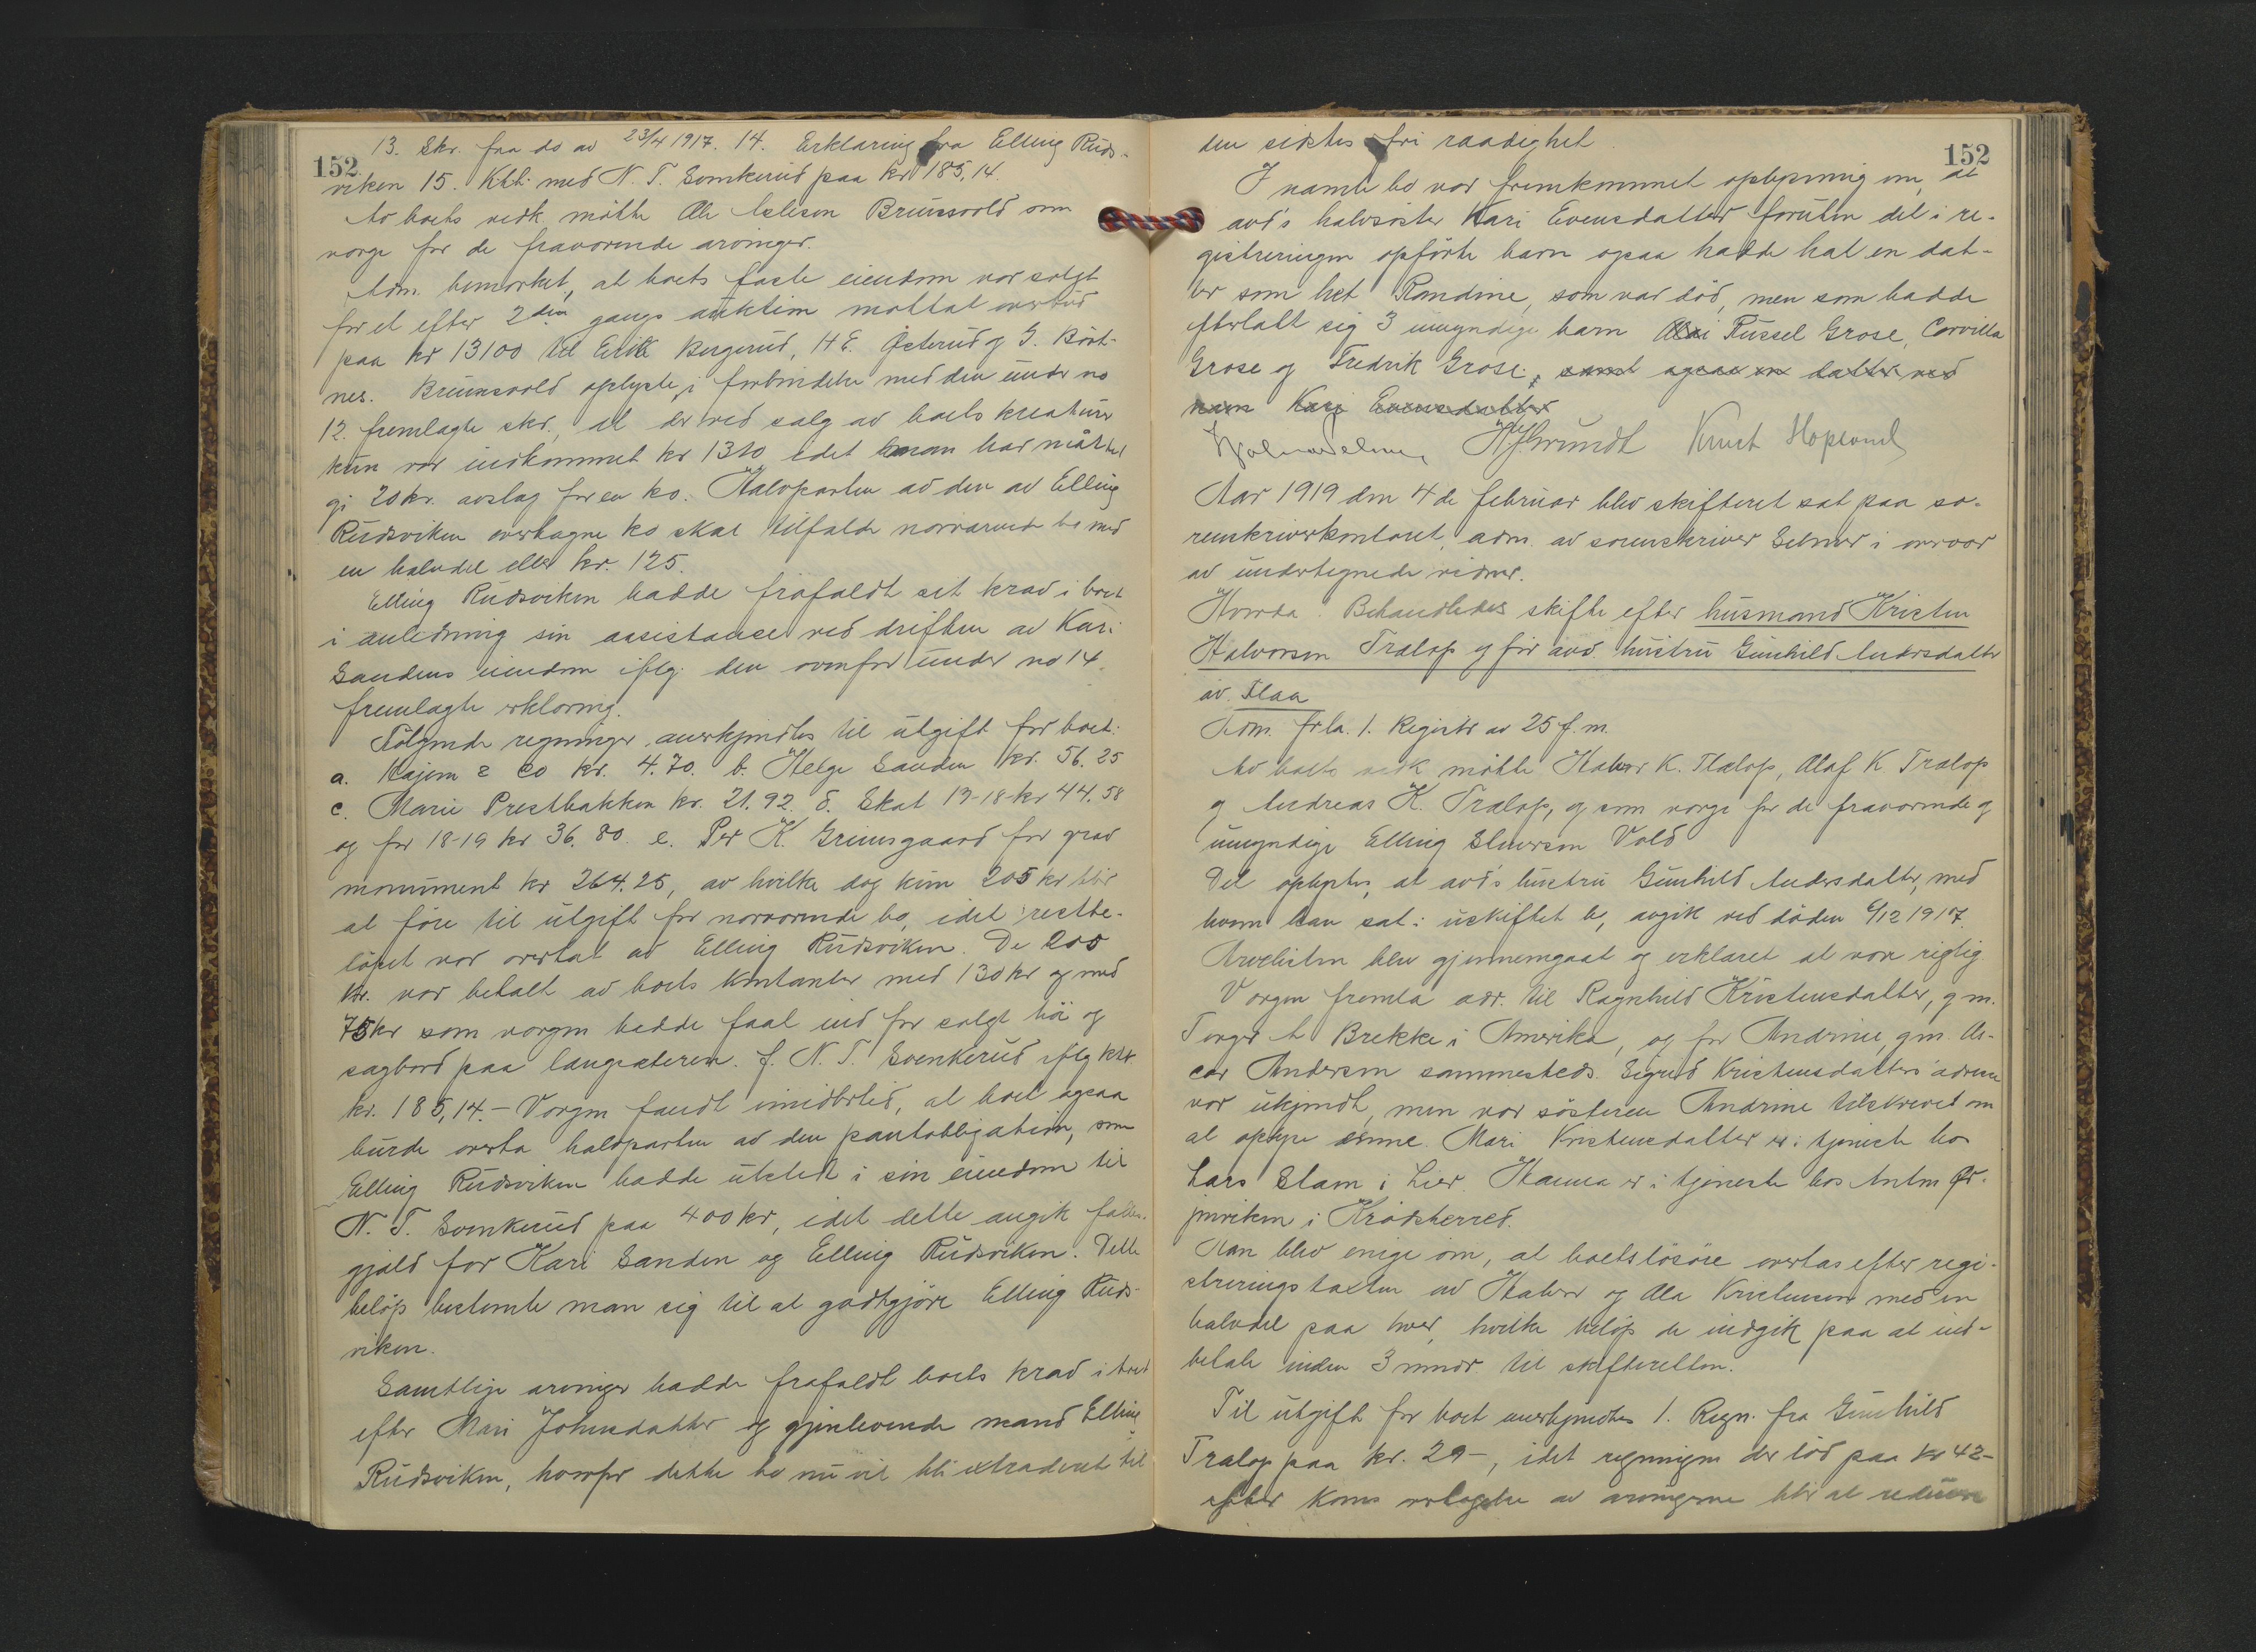 152
13. Skr. fra do av 23/4 1917. 14. Erklæring fra Elling Ruds-
viken 15. Khl. med N. T. Svenkerud paa kr 185,14.
Av boets vedk. møtte Ole Brunsvold som
verge for de fraværende arvinger.
Adm. bemærket, at boets faste eiendom var solgt
for et efter 2den gangs auktion mottat overbud
paa kr 13100 til Erik Bergerud, H E. Østerud og G. Børt-
nes. Brunsvold oplyste, i forbindelse med den under no
12. fremlagte skr., at der ved salg av boets kreaturer
kun var indkommet kr 1310 idet man har måttet
gi 20 kr. avslag for en ko. Halvparten av den av Elling
Rudsviken overtagne ko skal tilfalde nærværende bo med
en halvdel eller kr. 125.
Elling Rudsviken hadde frafaldt sit krav i boet
i anledning sin assistanse ved driften av Kari
Sandens eiendom iflg. den ovenfor under no 14
fremlagte erklæring.
Følgende regninger anerkjendtes til utgift for boet:
a. & Co kr. 4.70. b. Helge Sanden kr. 56.25
c. Marie Prestbakken kr. 21.92. d. Skat 17-18 kr 44.58
og for 18-19 kr 36.80. e. Per K. Grimsgaard for grav
monument kr 264.25, av hvilke dog kun 205 kr blir
at føre til utgift for nærværende bo, idet restbe-
løpet var overtat av Elling Rudsviken. De 205
kr. var betalt av boets kontanter med 130 kr og med
75 kr som vergen hadde faat ind for solgt hø og
sagbord paa langsæteren. f. N. T. Svenkerud iflg khl
kr. 185,14. - Vergen fandt imidlertid, at boet ogsaa
burde overta halvparten av den pantobligation, som
Elling Rudsviken hadde utstedt i sin eiendom til
N. T. Svenkerud paa 400 kr, idet dette angik fælles-
gjæld for Kari Sanden og Elling Rudsviken. Dette
beløp bestemte man sig til at godtgjøre Elling Ruds-
viken.
Samtlige arvinger hadde frafaldt boets krav i boet
efter Mari Johnsdatter og gjenlevende mand Elling
Rudsviken, hvorfor dette bo nu vil bli extraderet til
152
den sidstes fri raadighet.
I nævnte bo var fremkommet oplysning om, at
avd's halvsøster Kari Evensdatter foruten de i re-
gistreringen opførte barn ogsaa hadde hat en dat-
ter som het Randine, som var død, men som hadde
efterlatt sig 3 umyndige barn Russel Grose, Corvilla
Grose og Fredrik Grose, samt ogsaa en datter ved
navn Kari Evensdatter
Knut Hoplund
Aar 1919 den 4de februar blev skifteret sat paa so-
renskriverkontoret, adm. av sorenskriver Selmer i overvær
av undertegnede vidner.
Hvorda: Behandledes skifte efter husmand Kristen
Halvorsen Trælop og før avd hustru Gunhild Andersdatter
av Flaa
Adm. frla. 1. Registr av 25 f. m.
Av boets vedk møtte Halvor K. Trælop, Olaf K Trælop
og Andreas K. Trælop, og som verge for de fraværende og
umyndige Elling Vold
Det oplystes, at avd's hustru Gunhild Andersdatter, med
hvem han sat i uskiftet bo, avgik ved døden 6/12 1917.
Arvelisten blev gjennemgaat og erklæret at være rigtig
Vergen fremla adr. til Ragnhild Kristensdatter, g m.
Torger A Brekke i Amerika, og for Andrine, gm. Os-
car Anderson sammesteds. Sigrid Kristensdatters adresse
var ukjendt, men var søsteren Andrine tilskrevet om
at opgi denne. Mari Kristensdatter er i tjeneste hos
Lars Stam i Lier. Hanna er i tjeneste hos Anton
i Krødsherred.
Man blev enige om, at boets løsøre overtas efter regi-
streringstaxten av Halvor og Ola Kristensen med en
halvdel paa hver, hvilke beløp de indgik paa at ind-
betale inden 3 mndr til skifteretten.
Til utgift for boet anerkjendtes 1. Regn. fra Gunhild
Trælop paa kr. 29-, idet regningen der lød paa kr 42-
efter av arvingerne blir at redusere